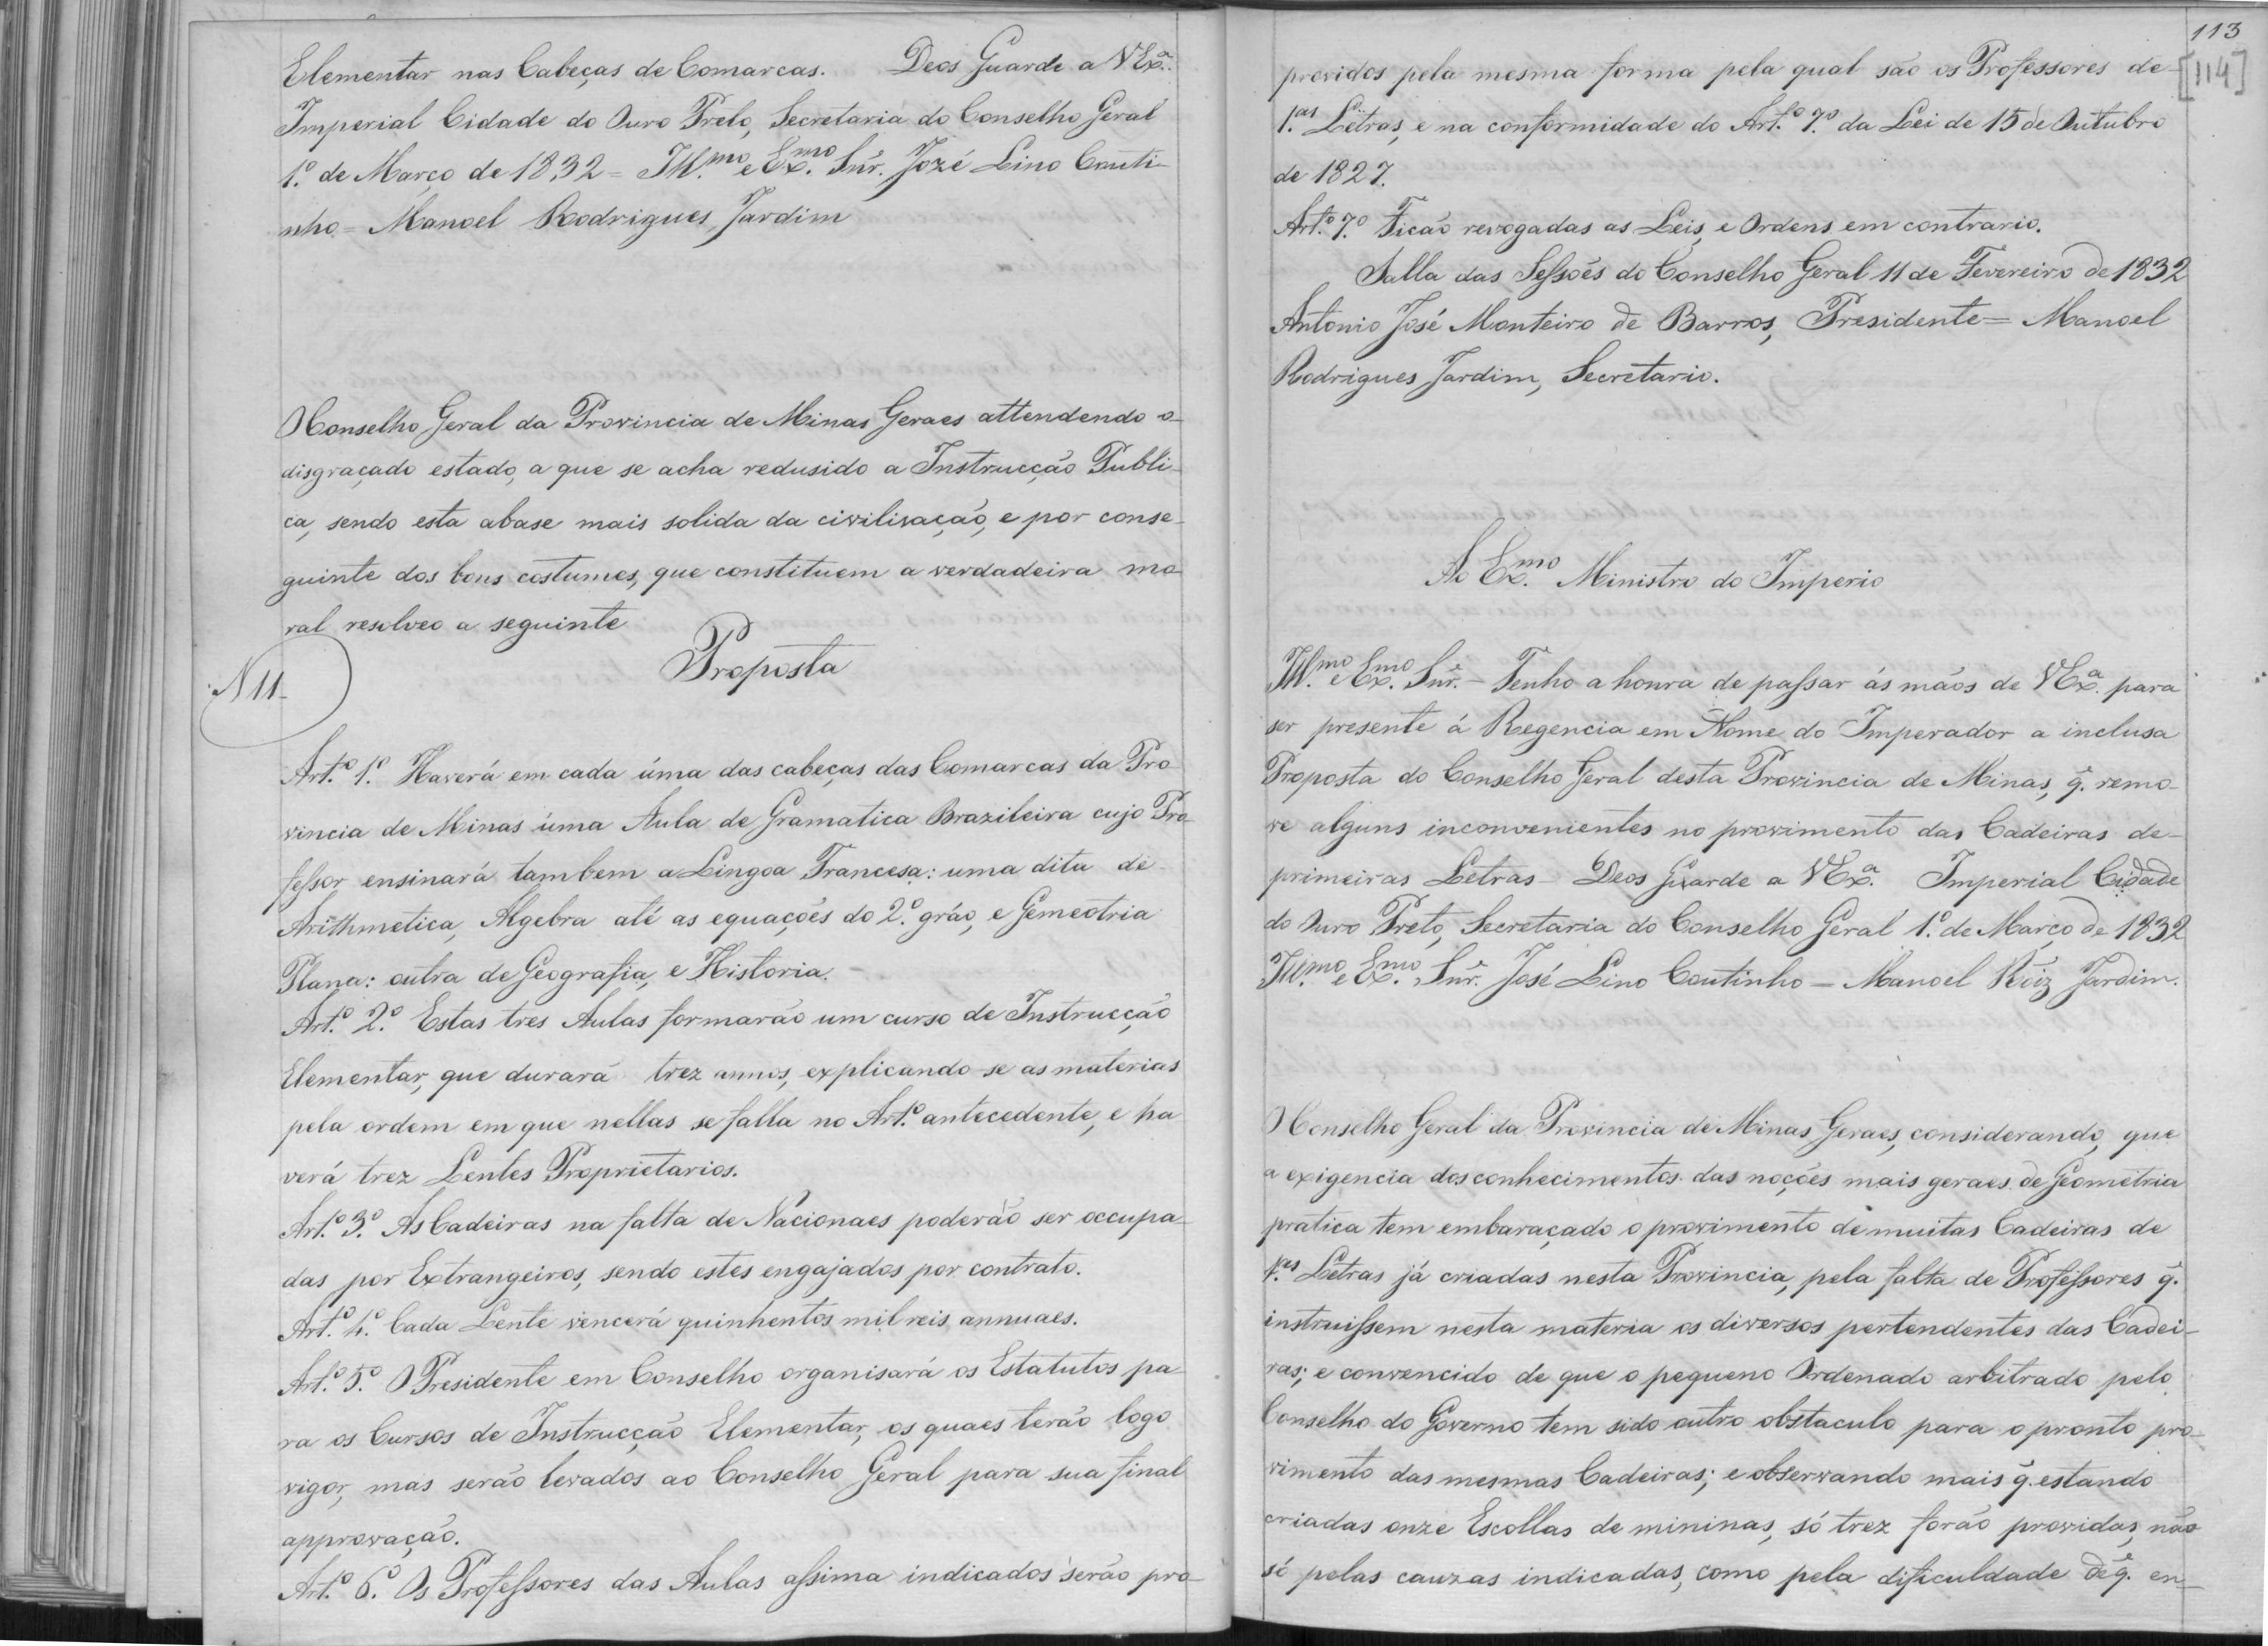 Elementar nas Cabeças de Comarcas. Deos Guarde a VExª.
Imperial Cidade do Ouro Preto, Secretaria do Conselho Geral
1º. de Março de 1832 = Illmo. e Exmo. Snr. Jozé Lino Couti-
nho = Manoel Rodrigues Jardim
O Conselho Geral da Provincia de Minas Geraes attendendo o
disgraçado estado, a que se acha redusido a Instrucção Publi-
ca, sendo esta abase mais solida da civilisação, e por conse-
guinte dos bons costumes, que constituem a verdadeira mo-
ral resolveo a seguinte
N 11
Proposta
Artº. 1º. Haverá em cada úma das cabeças das Comarcas da Pro
vincia de Minas úma Aula de Gramatica Brazileira cujo Pro-
fessor ensinará tambem a Lingoa Francesa: uma dita de
Arithmetica, Algebra até as equações do 2º. gráo, e Gemeotria
Plana: outra de Geografia, e Historia. -
Artº. 2º. Estas tres Aulas formarão um curso de Instrucção
Elementar, que durará trez annos, explicando-se as materias
pela ordem em que nellas se falla no Artº. antecedente, e ha
verá trez Lentes Proprietarios.
Artº. 3º. As Cadeiras na falta de Nacionaes poderão ser occupa-
das por Extrangeiros, sendo estes engajados por contrato.
Artº. 4º. Cada Lente vencerá quinhentos mil reis annuaes.
Artº. 5º. O Presidente em Conselho organisará os Estatutos pa-
ra os Cursos de Instrucção Elementar, os quaes terão logo
vigor, mas serão levados ao Conselho Geral para sua final
approvação.
Artº. 6º. Os Professores das Aulas assima indicados serão pro-
113
[114]
providos pela mesma forma pela qual são os Professores de-
1.as Letras, e na conformidade do Artº. 7º. da Lei de 15 de Outubro
de 1827.
Artº. 7º. Ficão revogadas as Leis, e Ordens em contrario.
Salla das Sessoês do Conselho Geral 11 de Fevereiro de 1832
Antonio José Monteiro de Barros, Presidente = Manoel
Rodrigues Jardim, Secretario.
Ao Exmo. Ministro do Imperio
Illmo. e Exmo. Snr. - Tenho a honra de passar ás mãos de VExª. para
ser presente á Regencia em Nome do Imperador a inclusa
Proposta do Conselho Geral desta Provincia de Minas, q̃. remo-
ve alguns inconvenientes no provimento das Cadeiras de-
primeiras Letras - Deos Guarde a VExª. Imperial Cidade
do Ouro Preto, Secretaria do Conselho Geral 1º. de Março de 1832
Illmo. e Exmo. Snr. José Lino Coutinho - Manoel Roiz Jardim.
O Conselho Geral da Provincia de Minas Geraes, considerando, que
a exigencia dos conhecimentos das noções mais geraes de Geometria
pratica tem embaraçado o provimento de muitas Cadeiras de
1.as Letras já criadas nesta Provincia, pela falta de Professores q̃.
instruissem nesta materia os diversos pertendentes das Cadei-
ras; e convencido de que o pequeno Ordenado arbitrado pelo
Conselho do Governo tem sido outro obstaculo para o pronto pro-
vimento das mesmas Cadeiras; e observando mais q̃. estando
criadas onze Escollas de mininas, só trez forão providas, não
só pelas cauzas indicadas, como pela dificuldade de q̃. en-